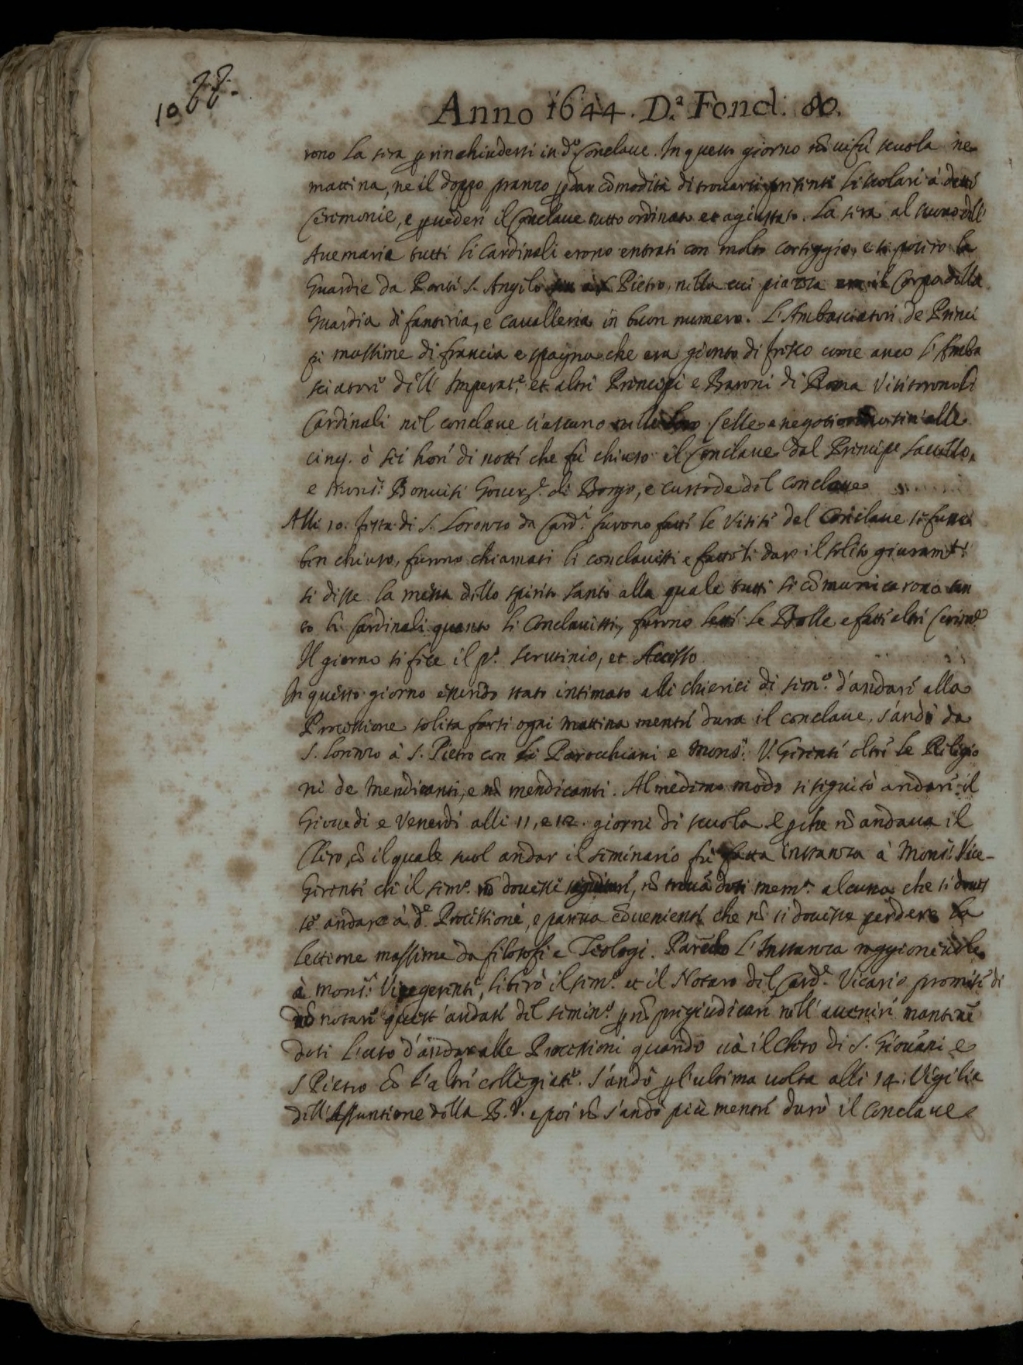 1088.
Anno 1644. D.ª Fond. 80.
rono la sera p rinchiudersi in d.º Conclave. In questo giorno nõ vi fù scuola ne
mattina, ne il doppo pranzo p dar cõmodità di trovarsi presenti li scolari à dette
Ceremonie, e p veder il Conclave tutto ordinato et agiustato. La sera al suono dell'
Avemaria tutti li Cardinali erono entrati con molto corteggio, e si posiro la
Guardie da Ponte S. Angilo Pietro, nella cui piazza il Corpo della
Guardia di fanteria, e cavalleria in buon numero. L'Ambasciatori de Princi
pi massime di francia e spagna che era gionto di fresco come anco l'Amba
sciatore dell' Imperat.e et altri Principi e Baroni di Roma visitorono li
Cardinali nel conclave ciascuno Celle a negotio sin alle
cinq. ò sei hore di notte che fù chiuso il Conclave dal Principe Savello,
e Mons.r Bonvisi Govern.r di Borgo, e custode del conclave
Alli 10. festa di S. Lorenzo da Card.i furono fatti le visite del Conclave se fusse
ben chiuso, furno chiamati li conclavisti e fattoli dare il solito giuram.to
si disse la messa dello spirito santo alla quale tutti si cõmunicarono tan
to li Cardinali quanto li Conclavisti, furono letti le Bolle e fatti altri Cerimo.e
Il giorno si fece il p.º scrutinio, et Accesso
In questo giorno essendo stato intimato alli chierici di sem.º d'andare alla
Processione solita farsi ogni mattina mentre dura il conclave, s'andò da
S. Lorenzo à S. Pietro con li Parochiani e Mons.r V. Gerente oltre le Religio
ni de Mendicanti, e nõ mendicanti. Al medemo modo si seguitò andare il
Giovedi e Venerdi alli 11, e 12. giorni di scuola. E p che nõ andava il
Clero, cõ il quale suol andar il seminario fù fatta instanza à Mons.r Vice-
Gerente che il sem.º nõ dovesse, nõ mem.ª alcuna che si doves
se andare à d.ª Processione, e pareva cõveniente che nõ si dovesse perdere la
lettione massime da filosofi e Teologi. L'Instanza raggionevole
à Mons.r Vicegerente, liberò il sem.º et il Notaro del Card.e Vicario promise di
nõ notare quest' andate del semin.º p nõ pregiudicare nell'avenire
s'andare alle Processioni quando và il Clero di S. Giovani e
S Pietro cõ l'altri collegiate. S'andò p l'ultima volta alli 14. Vigilia
dell'Assuntione della B.V. e poi nõ s'andò più mentre durò il Conclave